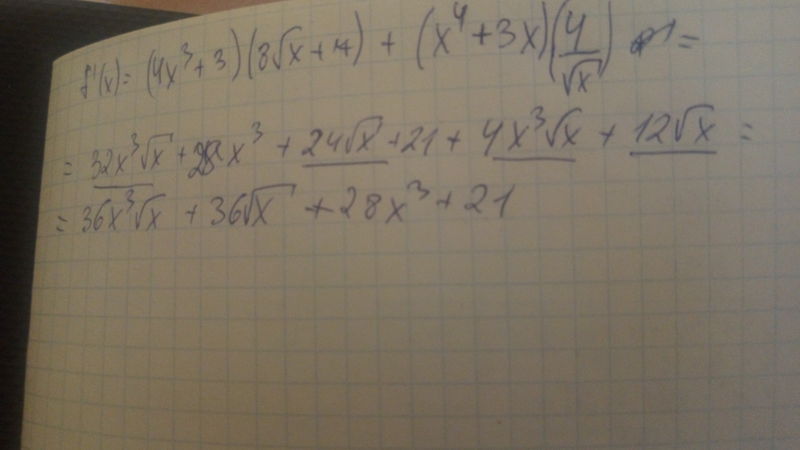 f'(x) = (4x³+3)(8√x+7) + (x⁴+3x)(4/√x) =
= 32x³√x + 28x³ + 24√x + 21 + 4x³√x + 12√x =
= 36x³√x + 36√x + 28x³ + 21